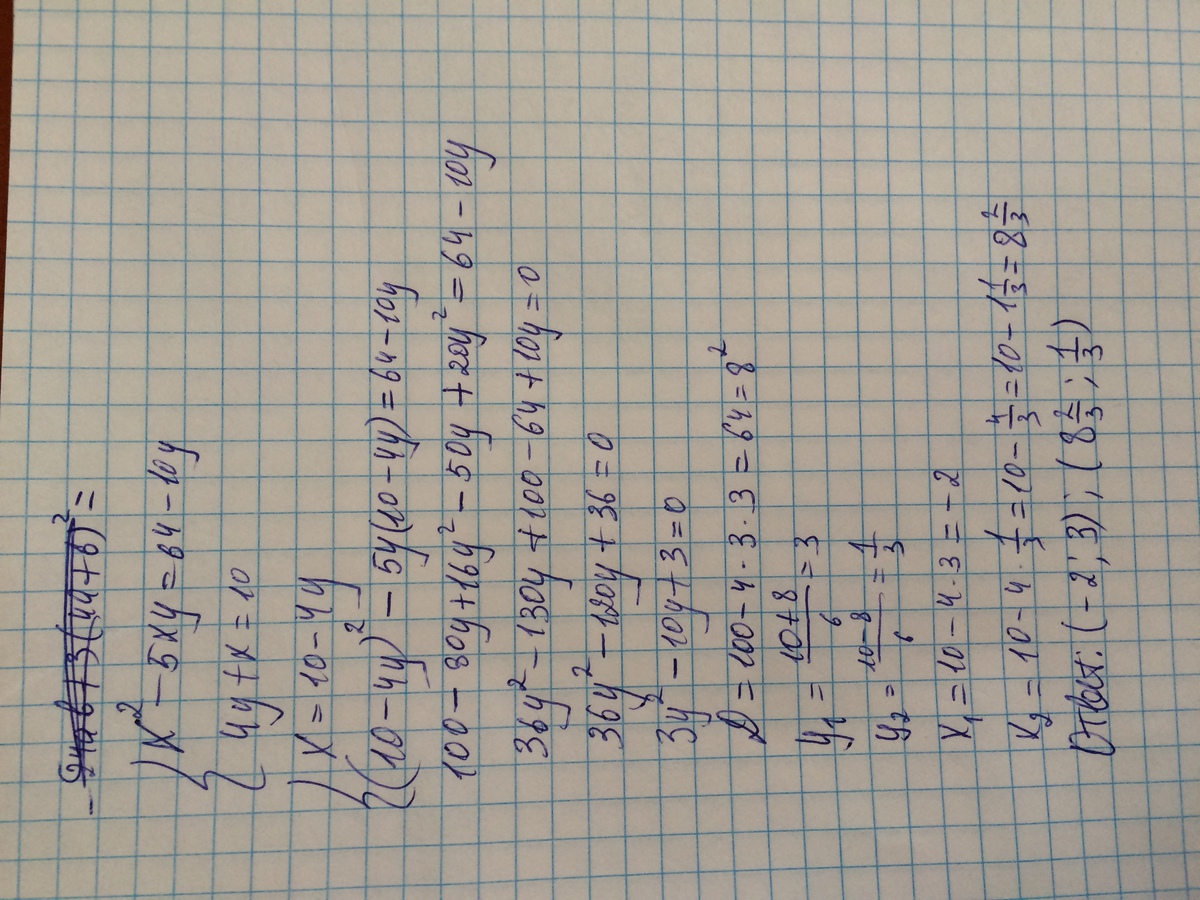 x² - 5xy = 64 - 10y
4y + x = 10
x = 10 - 4y
(10 - 4y)² - 5y(10 - 4y) = 64 - 10y
100 - 80y + 16y² - 50y + 20y² = 64 - 10y
36y² - 130y + 100 - 64 + 10y = 0
36y² - 120y + 36 = 0
3y² - 10y + 3 = 0
D = 100 - 4 · 3 · 3 = 64 = 8²
y₁ = (10 + 8)/6 = 3
y₂ = (10 - 8)/6 = 1/3
x₁ = 10 - 4 · 3 = -2
x₂ = 10 - 4 · 1/3 = 10 - 4/3 = 10 - 1 1/3 = 8 2/3
Ответ: (-2; 3); (8 2/3; 1/3)